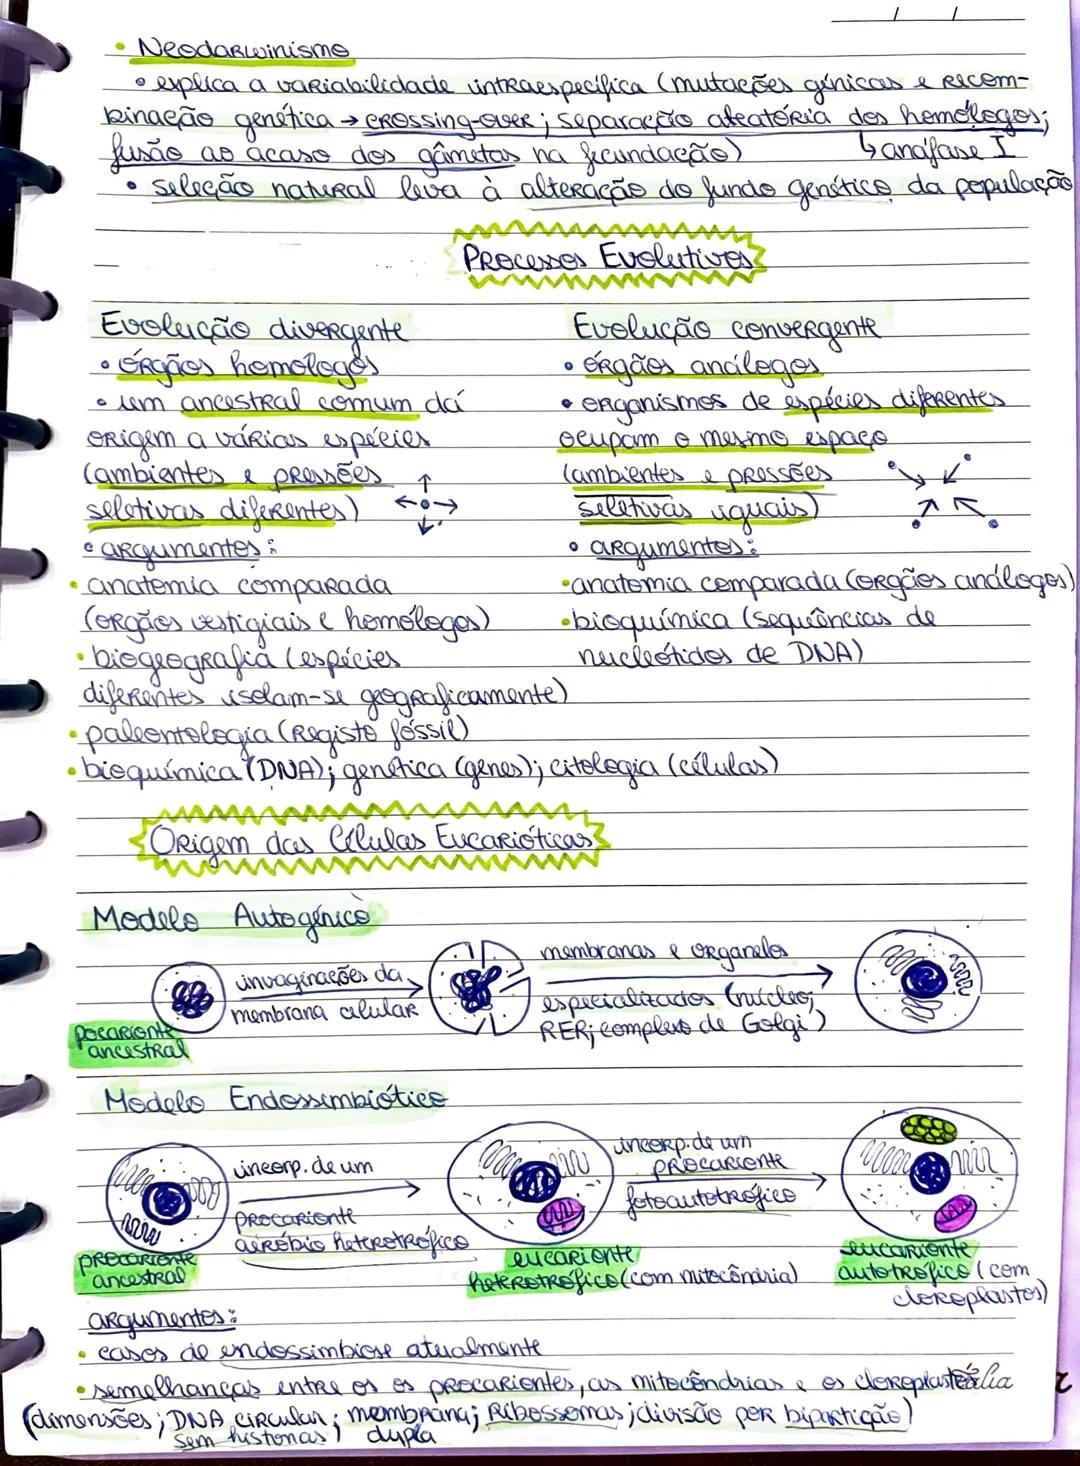 / /
• Neodarwinismo
• explica a variabilidade intraespecífica (mutações génicas e recom-
binação genética → crossing-over; separação aleatória dos homólogos;
fusão ao acaso dos gâmetas na fecundação) ↳ anáfase I
• seleção natural leva à alteração do fundo genético da população
Processos Evolutivos
Evolução divergente
• órgãos homólogos
• um ancestral comum dá
origem a várias espécies
(ambientes e pressões
seletivas diferentes)
• argumentos:
• anatomia comparada
(orgãos vestigiais e homólogos)
• biogeografia (espécies
diferentes isolam-se geograficamente)
• paleontologia (Registo fóssil)
• bioquímica (DNA); genética (genes); citologia (células)
Evolução convergente
• órgãos análogos
• organismos de espécies diferentes
ocupam o mesmo espaço
(ambientes e pressões
seletivas iguais)
• argumentos:
• anatomia comparada (orgãos análogos)
• bioquímica (sequências de
nucleótidos de DNA)
Origem das Células Eucarióticas
Modelo Autogénico
procarionte
ancestral
invaginações da
membrana celular
membranas e organelos
especializados (núcleo;
RER; complexo de Golgi)
Modelo Endossimbiótico
procarionte
ancestral
incorp. de um
procarionte
aeróbio heterotrófico
eucarionte
heterotrófico (com mitocôndria)
incorp. de um
procarionte
fotoautotrófico
eucarionte
autotrófico (com
cloroplastos)
argumentos:
• casos de endossimbiose atualmente
• semelhanças entre os os procariontes, as mitocôndrias e os cloroplastos
(dimensões; DNA circular; membrana; Ribossomas; divisão por bipartição)
sem histonas) dupla